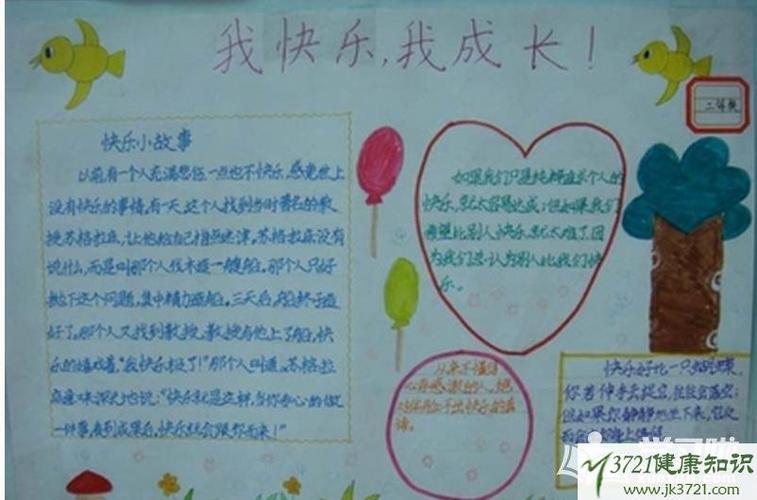 我快乐,我成长!
二年级
快乐小故事
以前有一个人充满悲伤,一点也不快乐,感觉世上
没有快乐的事情,有一天,这个人找到当时著名的教
授苏格拉底,让他给自己指点迷津。苏格拉底没有
说什么,而是叫那个人伐木造一艘船。那个人只好
抛下这个问题,集中精力造船。三天后,船终于造
好了。那个人又找到教授,教授与他上了船,快
乐的嬉戏着。“我快乐极了!”那个人叫道,苏格拉
底意味深长地说:“快乐就是这样,当你专心的做
一件事,看到成果后,快乐就会跟你而来!”
如果我们只是纯粹追求个人的
快乐,就太容易达成;但如果我们
希望比别人快乐,就太难了,因
为我们总认为别人比我们快
乐。
从来不懂得
心存感激的人,绝
对体验不出快乐的真
谛。
快乐好比一只蝴蝶
你若伸手去捉它,往往会落空;
但如果你静静的坐下来,它反
而
上
3721健康知识
www.jk3721.com